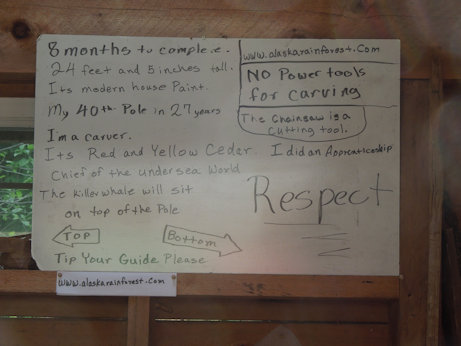 8 months to complete.
24 feet and 5 inches tall.
Its modern house Paint.
My 40th Pole in 27 years
I'm a carver.
Its Red and Yellow Cedar. I did an Apprenticeship
Chief of the undersea World
The killer whale will sit
on top of the Pole
Top
Bottom
Tip Your Guide Please
www.alaskarainforest.com
No Power tools
for carving
The Chainsaw is a
cutting tool.
Respect
www.alaskarainforest.com